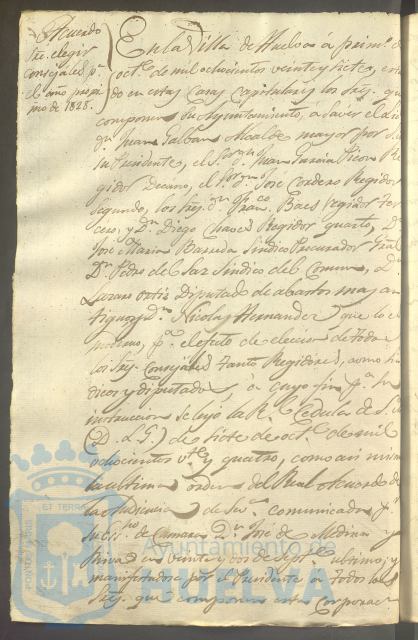 Acuerdo
elegir
consejales pa.
el año procsi
mo de 1828.
En la Villa de Huelva á primo. de
octe. de mil ochocientos veinte y siete, es
do en estas Casas Capitulares los Sres. que
componen su Ayuntamiento, á saver el
Dn. Juan Galban Alcalde mayor por S.
su Presidente, el Sor. Dn. Juan Garcia Re
gidor Decano, el Sor. Dn. José Cordero Regidor
Segundo, los Sres. Dn. Franco. Baes regidor ter
cero, y Dn. Diego Regidor quarto, D.
José Maria Barreda Sindico Procurador Gral
Dn. Pedro del Saz Sindico del Comun, Dn.
Lazaro Ortiz Diputado de abastos mas an
tiguo y Dn. Nicolas Hernandez que lo es
moderno, pa. efecto de eleccion de todos
los Sres. Consejales tanto Regidores, como Sin
dicos y diputados, á cuyo fin pa. su
instruccion se leyó la Rl. Cedula de S. M.
(Q. D. G.) de siete de octe. de mil
ochocientos vte. y quatro, como asi mismo
la ultima orden del Real Acuerdo de
la Audiencia de Seva. comunicada pr.
su Essno. de Camara Dn. José de Medina y
en veinte y dos de Sepe. ultimo; y
manifestadose por el Presidente á todos los
Sres. que componen esta Corporac
PORTUS MARIS
ET TERRAE
Ayuntamiento de
HUELVA